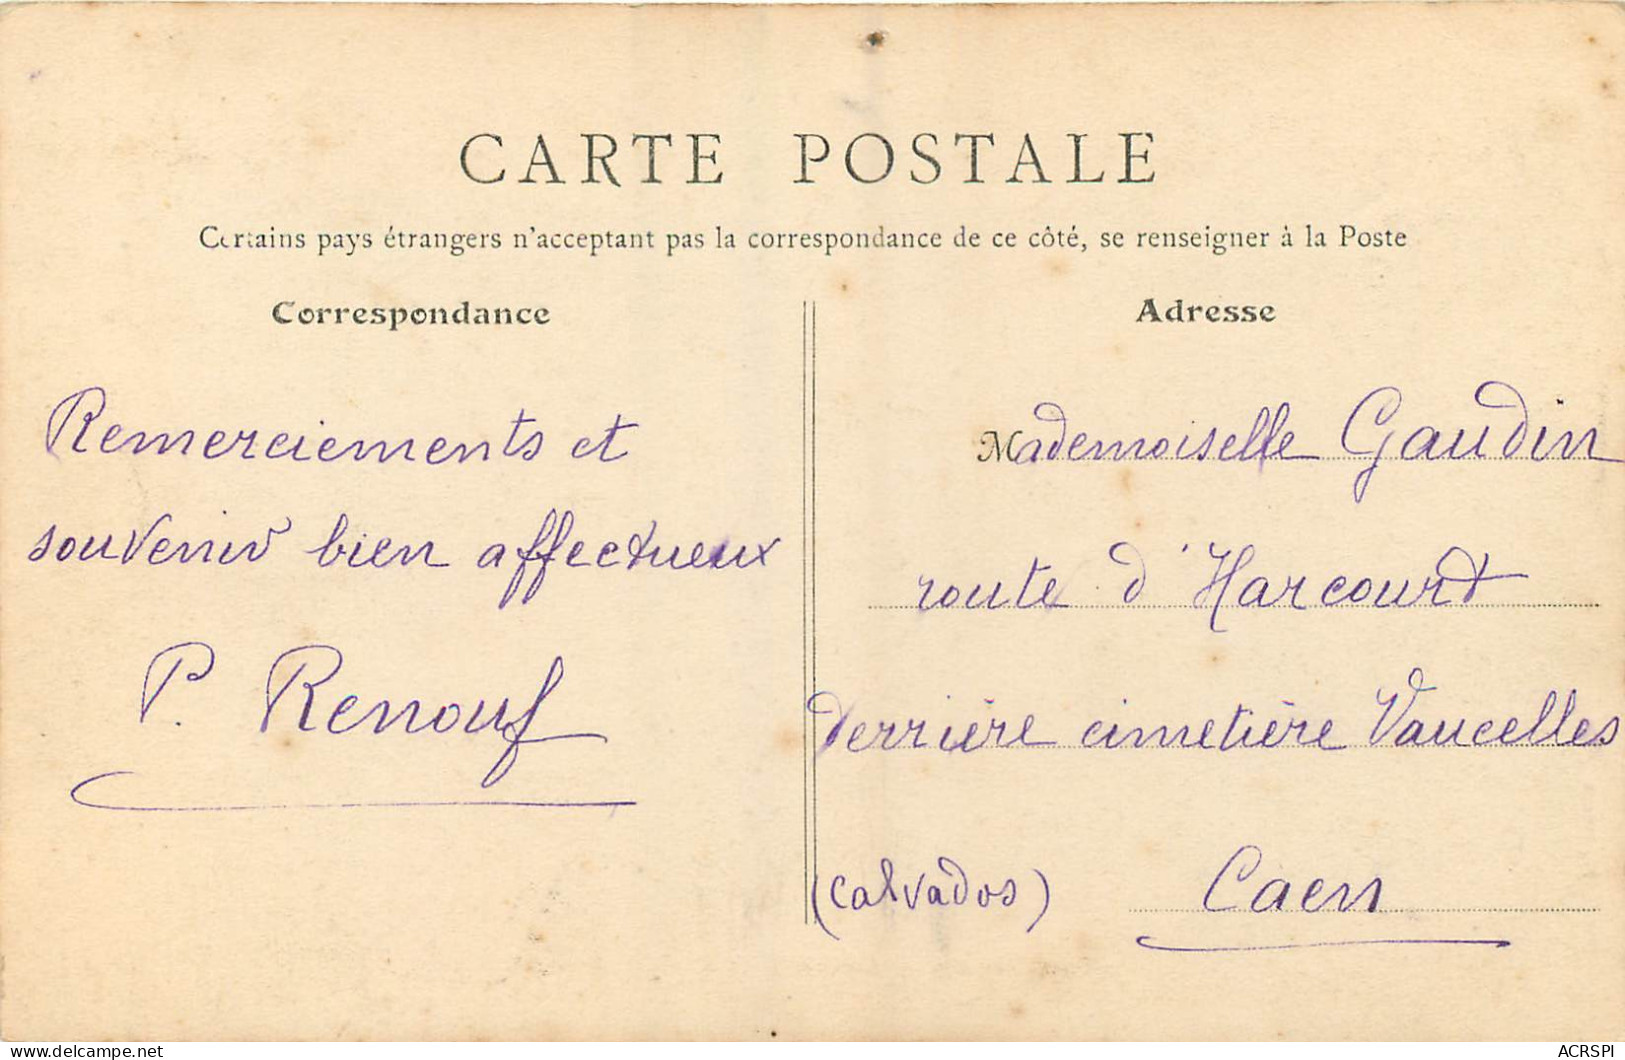 CARTE POSTALE
Certains pays étrangers n'acceptant pas la correspondance de ce côté, se renseigner à la Poste
Correspondance
Remerciements et
souvenir bien affectueux
P. Renouf
Adresse
Mademoiselle Gaudin
route d'Harcourt
derrière cimetière Vaucelles
(Calvados) Caen
delcampe.net
ACRSPI